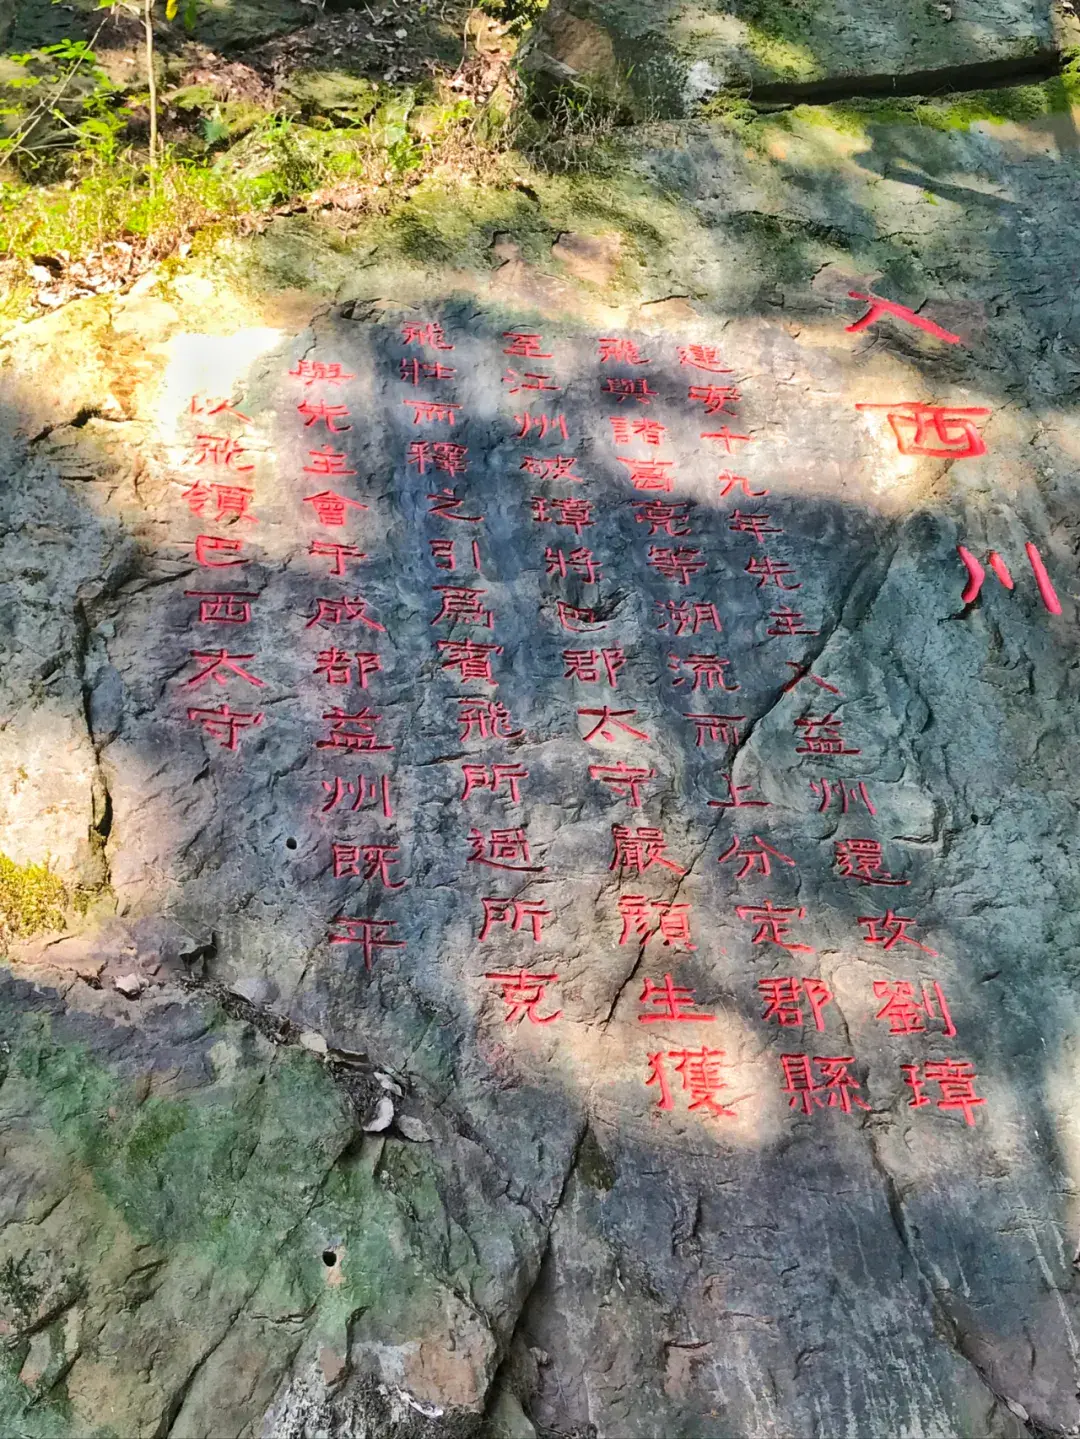 入西川
建安十九年先主入益州還攻劉璋
飛與諸葛亮等溯流而上分定郡縣
至江州破璋將巴郡太守嚴顏生獲
飛壯而釋之引爲賓飛所過所克
與先主會于成都益州既平
以飛領巴西太守